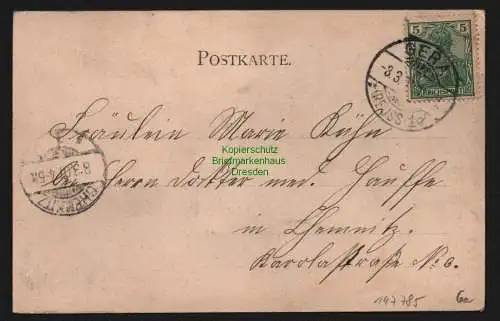 POSTKARTE.
5 5
REICHSPOST
GERA
8.3.
(REUSS)
Fräulein Marie Kühn
bei Herrn Doktor med. Hauffe
in Chemnitz.
Karolastraße No. 6.
CHEMNITZ
8.3.
Kopierschutz
Briefmarkenhaus
Dresden
197785
6a